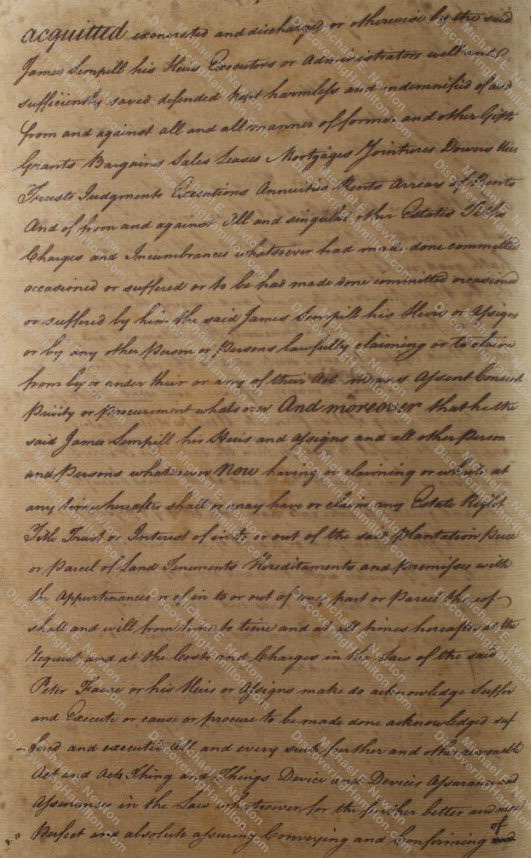 acquitted exonerated and discharged or otherwise by the said
James Lempill his Heirs Executors or Administrators well and
sufficiently saved defended kept harmless and indemnified of and
from and against all and all manner of former and other Gifts
Grants Bargains Sales Leases Mortgages Jointures Dowers Uses
Trusts Judgments Executions Annuities Rents Arrears of Rents
And of from and against All and singular other Estates Titles
Charges and Incumbrances whatsoever had made done committed
occasioned or suffered or to be had made done committed occasioned
or suffered by him the said James Lempill his Heirs or Assigns
or by any other Person or Persons lawfully claiming or to claim
from by or under their or any of their Act means Assent Consent
Privity or Procurement whatsoever And moreover that he the
said James Lempill his Heirs and Assigns and all other Person
and Persons whatsoever Now having or claiming or which at
any time hereafter shall or may have or claim any Estate Right
Title Trust or Interest of in to or out of the said Plantation Piece
or Parcel of Land Tenements Hereditaments and Premisses with
the Appurtenances or of in to or out of any part or Parcel thereof
shall and will from time to time and at all times hereafter at the
request and at the Costs and Charges in the Law of the said
Peter his Heirs or Assigns make do acknowledge Suffer
and Execute or cause or procure to be made done acknowledged suf
fered and executed All and every such further and other reasonable
Act and Acts Thing and Things Device and Devices Assurance and
Assurances in the Law whatsoever for the further better and more
Perfect and absolute assuring Conveying and Confirming of
Michael E. Newton
DiscoveringHamilton.com